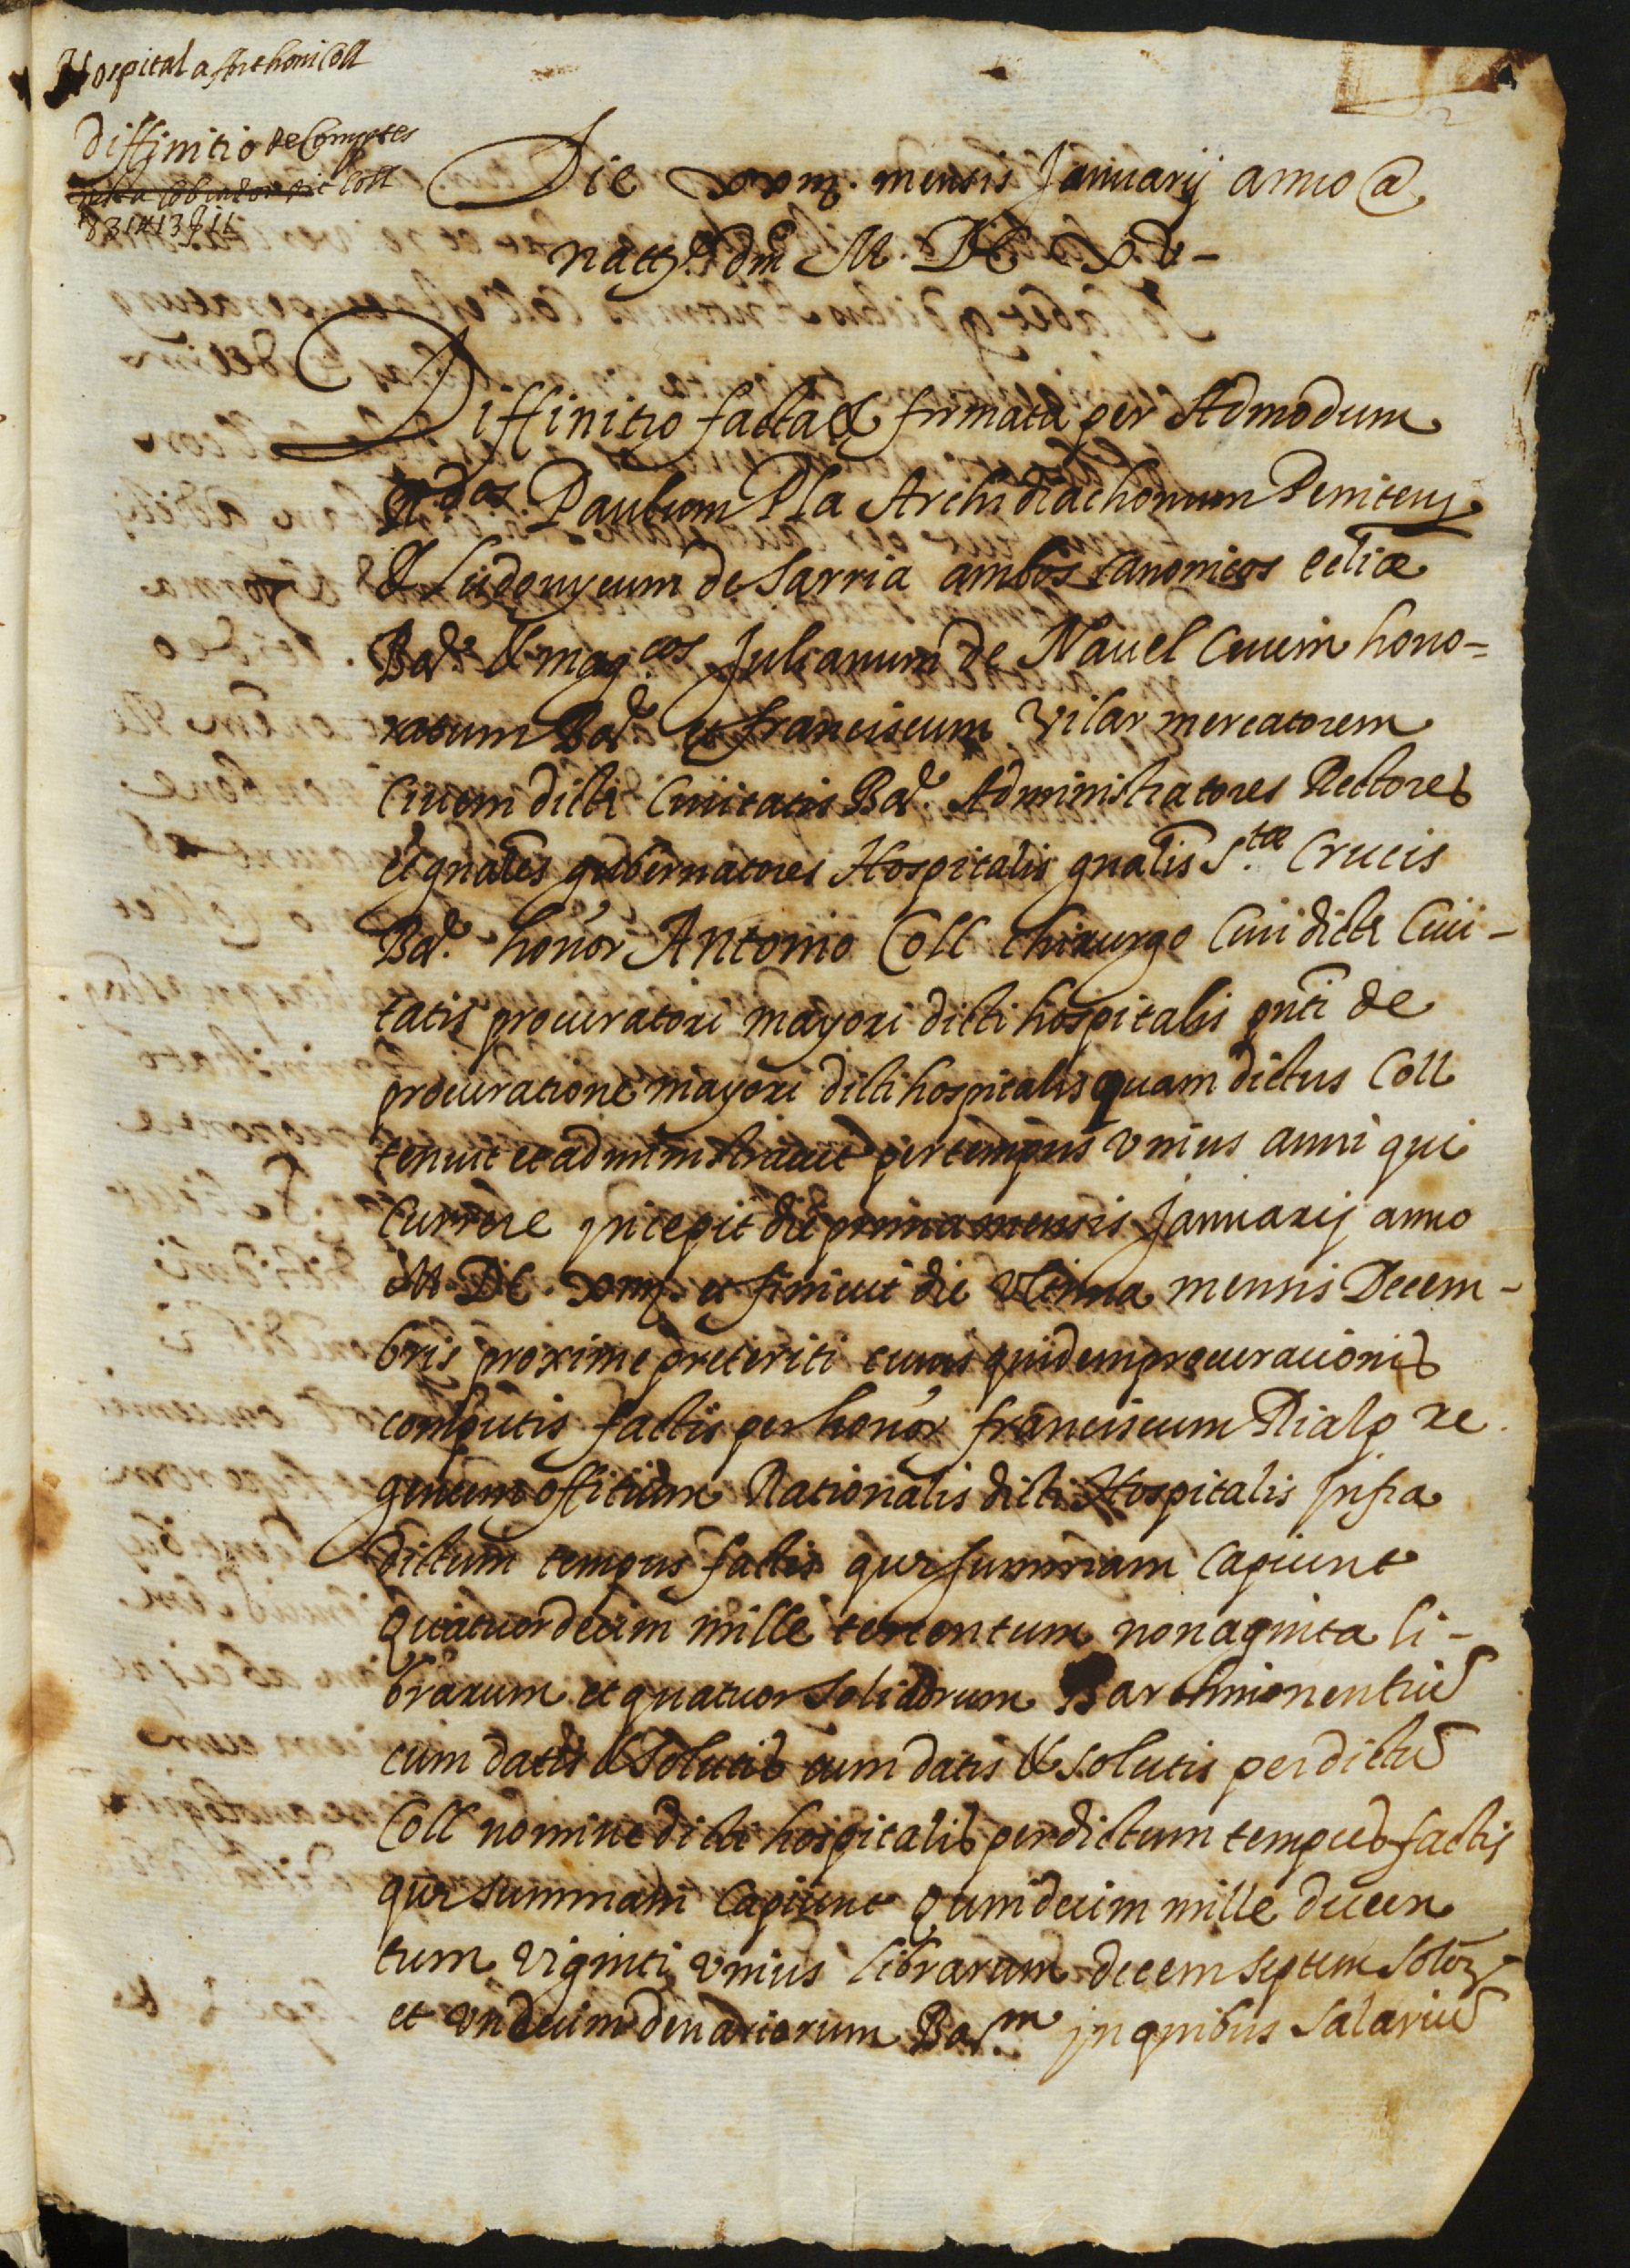 Hospital a Anthoni Coll
Diffinitio de Comptes
Coll
831 ll 13 s 11
Die xxiij. mensis Januarij anno a
natte. dnj M DC XV -
Diffinitio facta & firmata per Admodum
Rdos. Paulum Pla Archidiachonum Penitens
& Ludouycum de Sarria ambos canonicos eccliæ
Bar. & mag.cos Julianum de Nauel Ciuem hono=
ratum Bar. et franciscum Vilar mercatorem
Ciuem dicte Ciuitatis Bar. Administratores Rectores
et gnales gubernatores Hospitalis gnalis S.tæ Crucis
Bar. honor Antonio Coll chirurgo Ciui dicte Ciui-
tatis procuratori mayori dicti hospitalis pnti de
procuratione mayori dicti hospitalis quam dictus Coll
tenuit et administrauit per tempus vnius anni qui
Currere jncepit die prima mensis Januarij anno
M. DC. xiiij. et finiuit die vltima mensis Decem-
bris proxime preteriti cuius quidem procurationis
computis factis per honor franciscum Rialp re
gentem offitium Rationalis dicti Hospitalis jnfra
dictum tempus factis que summam capiunt
Quatuordecim mille tercentum nonaginta li-
brarum et quatuor solidorum Barchinonentium
cum datis & solutis cum datis & solutis per dictum
Coll nomine dicti hospitalis per dictum tempus factis
que summam Capiunt Quindecim mille ducen
tum viginti vnius librarum decem septem solor
et vndecim denariorum Bar.m jn quibus salarium